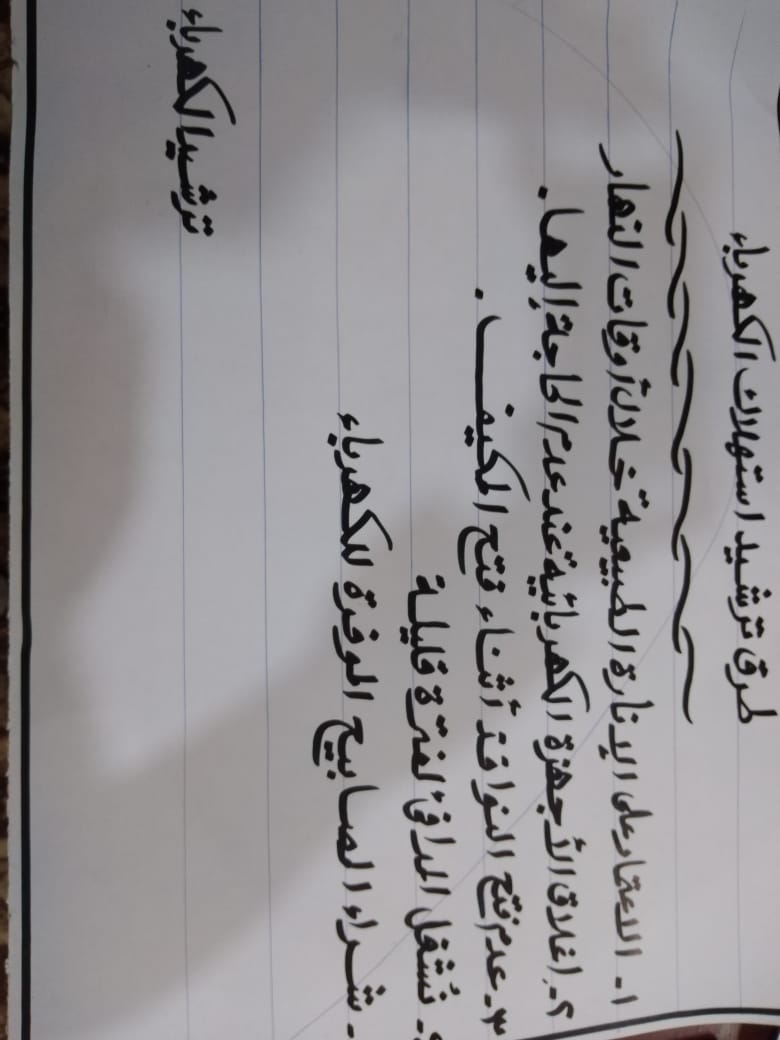 طرق ترشيد استهلاك الكهرباء
١- الاعتماد على الإنارة الطبيعية خلال أوقات النهار
٢- إغلاق الأجهزة الكهربائية عند عدم الحاجة إليها.
٣- عدم فتح النوافذ أثناء فتح المكيف.
- نُشغل المدافئ لفترة قليلة
- شراء المصابيح الموفرة للكهرباء
ترشيد الكهرباء